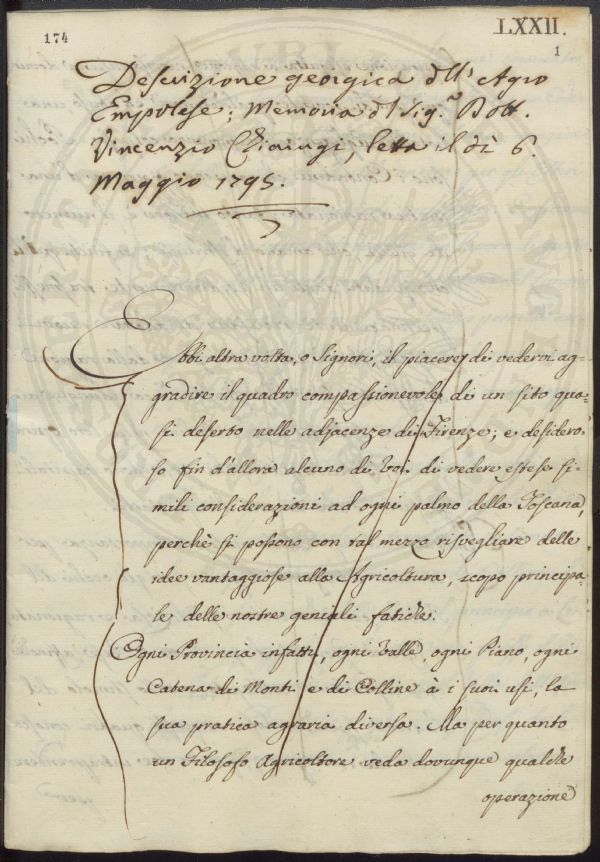 174
LXXII.
1
Descrizione georgica dell' Agro
Empolese; Memoria del Sig.r Dott.
Vincenzio Chiarugi, letta il dì 6.
Maggio 1795.
Ebbi altra volta, o Signori, il piacere di vedervi ag-
gradire il quadro compassionevole di un sito qua-
si deserto nelle adjacenze di Firenze; e desidero-
so fin d'allora alcuno di Voi di vedere estese si-
mili considerazioni ad ogni palmo della Toscana,
perchè si possono con tal mezzo risvegliare delle
idee vantaggiose alla Agricoltura, scopo principa-
le delle nostre geniali fatiche.
Ogni Provincia infatti, ogni Valle, ogni Piano, ogni
Catena di Monti e di Colline à i suoi usi, la
sua pratica agraria diversa. Ma per quanto
un Filosofo Agricoltore veda dovunque qualche
operazione